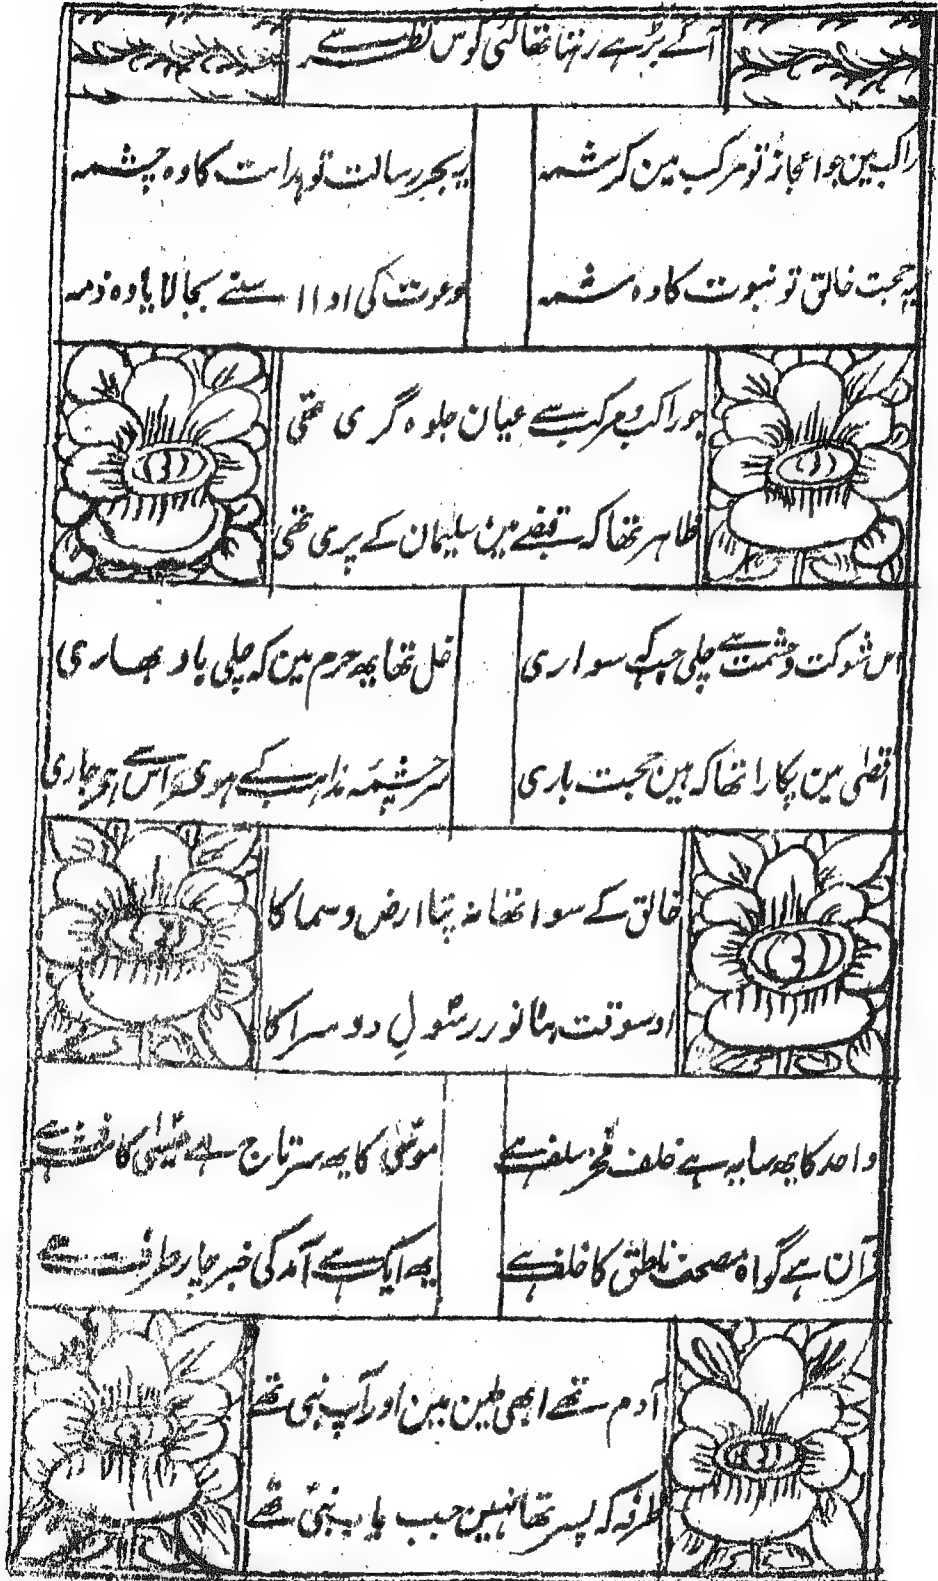 آگے بڑھے رہنا تھا کئی کوس نظر سے
راکب مین جو اعجاز تو مرکب مین کرشمہ
یہ بحر رسالت تو ہدایت کا وہ چشمہ
یہ حجت خالق تو نبوت کا وہ شمہ
دعوت کی ادا اسنے بجا لایا وہ ذمہ
جو راکب و مرکب سے عیان جلوہ گری تھی
ظاہر تھا کہ قبضے مین سلیمان کے پری تھی
اس شوکت و حشمت سے چلی جبکہ سواری
غل تھا یہ حرم مین کہ چلی باد بہاری
اقصٰی مین پکارا تھا کہ ہین حجت باری
سرچشمہ مذاہب کے ہوی اس سے ہی جاری
خالق کے سوا تھا نہ پتا ارض و سما کا
اوسوقت بنا نور رسول دوسرا کا
واحد کا یہ سایہ ہے خلف فخر سلف ہے
موسٰی کا یہ سرتاج ہے عیسٰی کا شرف ہے
قرآن ہے گواہ مصحف ناطق کا خلف ہے
یہ ایک ہے آمد کی خبر چار طرف ہے
آدم تھے ابھی طین مین اور آپ نبی تھے
طرفہ کہ پسر تھا نہین جب باپ نبی تھے